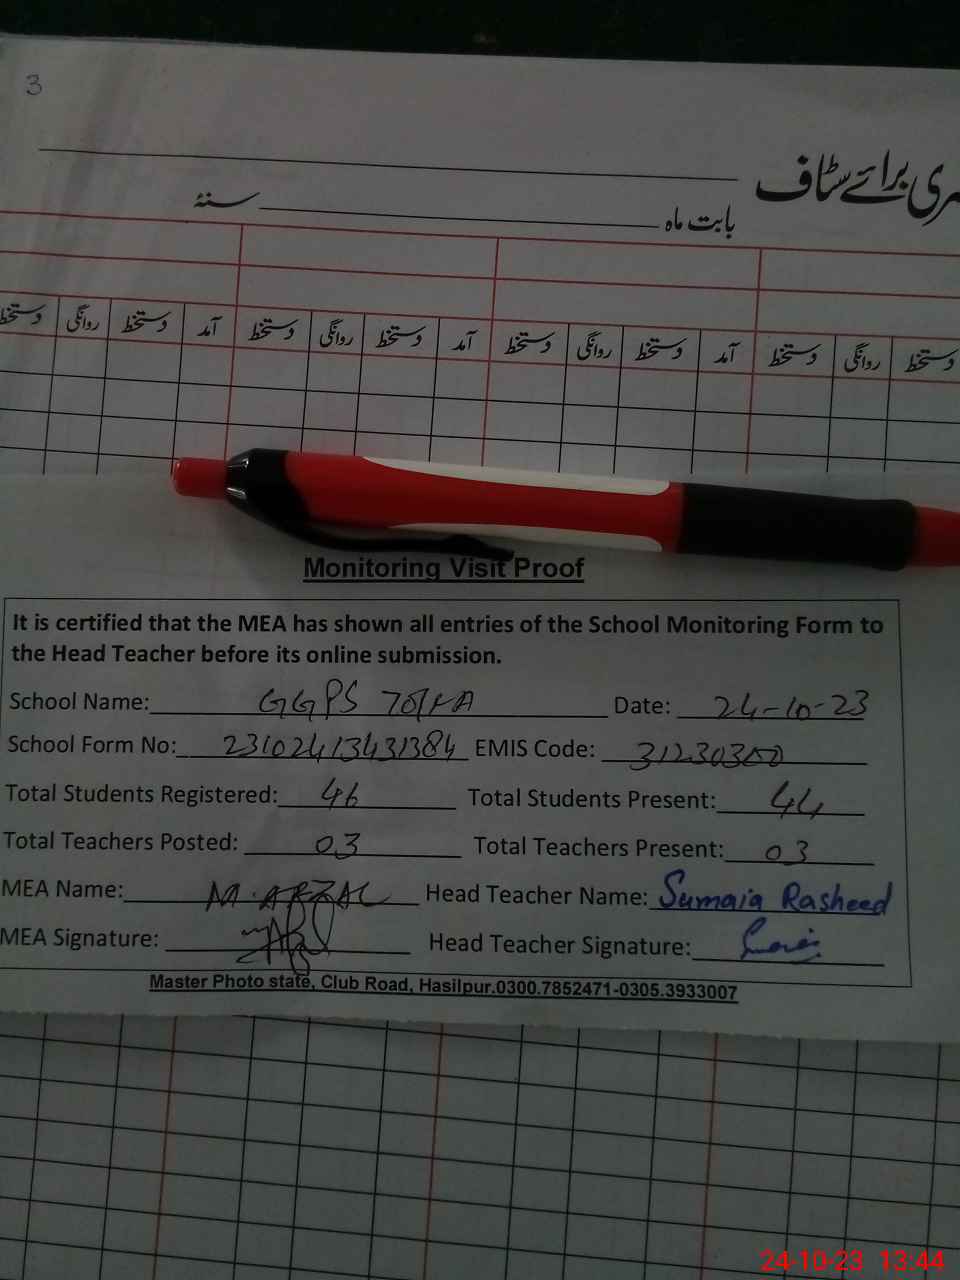 3
سری برائے سٹاف
بابت ماہ سنۂ
دستخط روانگی دستخط آمد دستخط روانگی دستخط آمد دستخط روانگی دستخط آمد دستخط روانگی دستخط
Monitoring Visit Proof
It is certified that the MEA has shown all entries of the School Monitoring Form to
the Head Teacher before its online submission.
School Name: GGPS Date: 24-10-23
School Form No: 23102413431384 EMIS Code: 31230300
Total Students Registered: 46 Total Students Present: 44
Total Teachers Posted: 03 Total Teachers Present: 03
MEA Name: M. Head Teacher Name: Sumaia Rasheed
MEA Signature: Head Teacher Signature:
Master Photo state, Club Road, Hasilpur.0300.7852471-0305.3933007
24-10-23 13:44